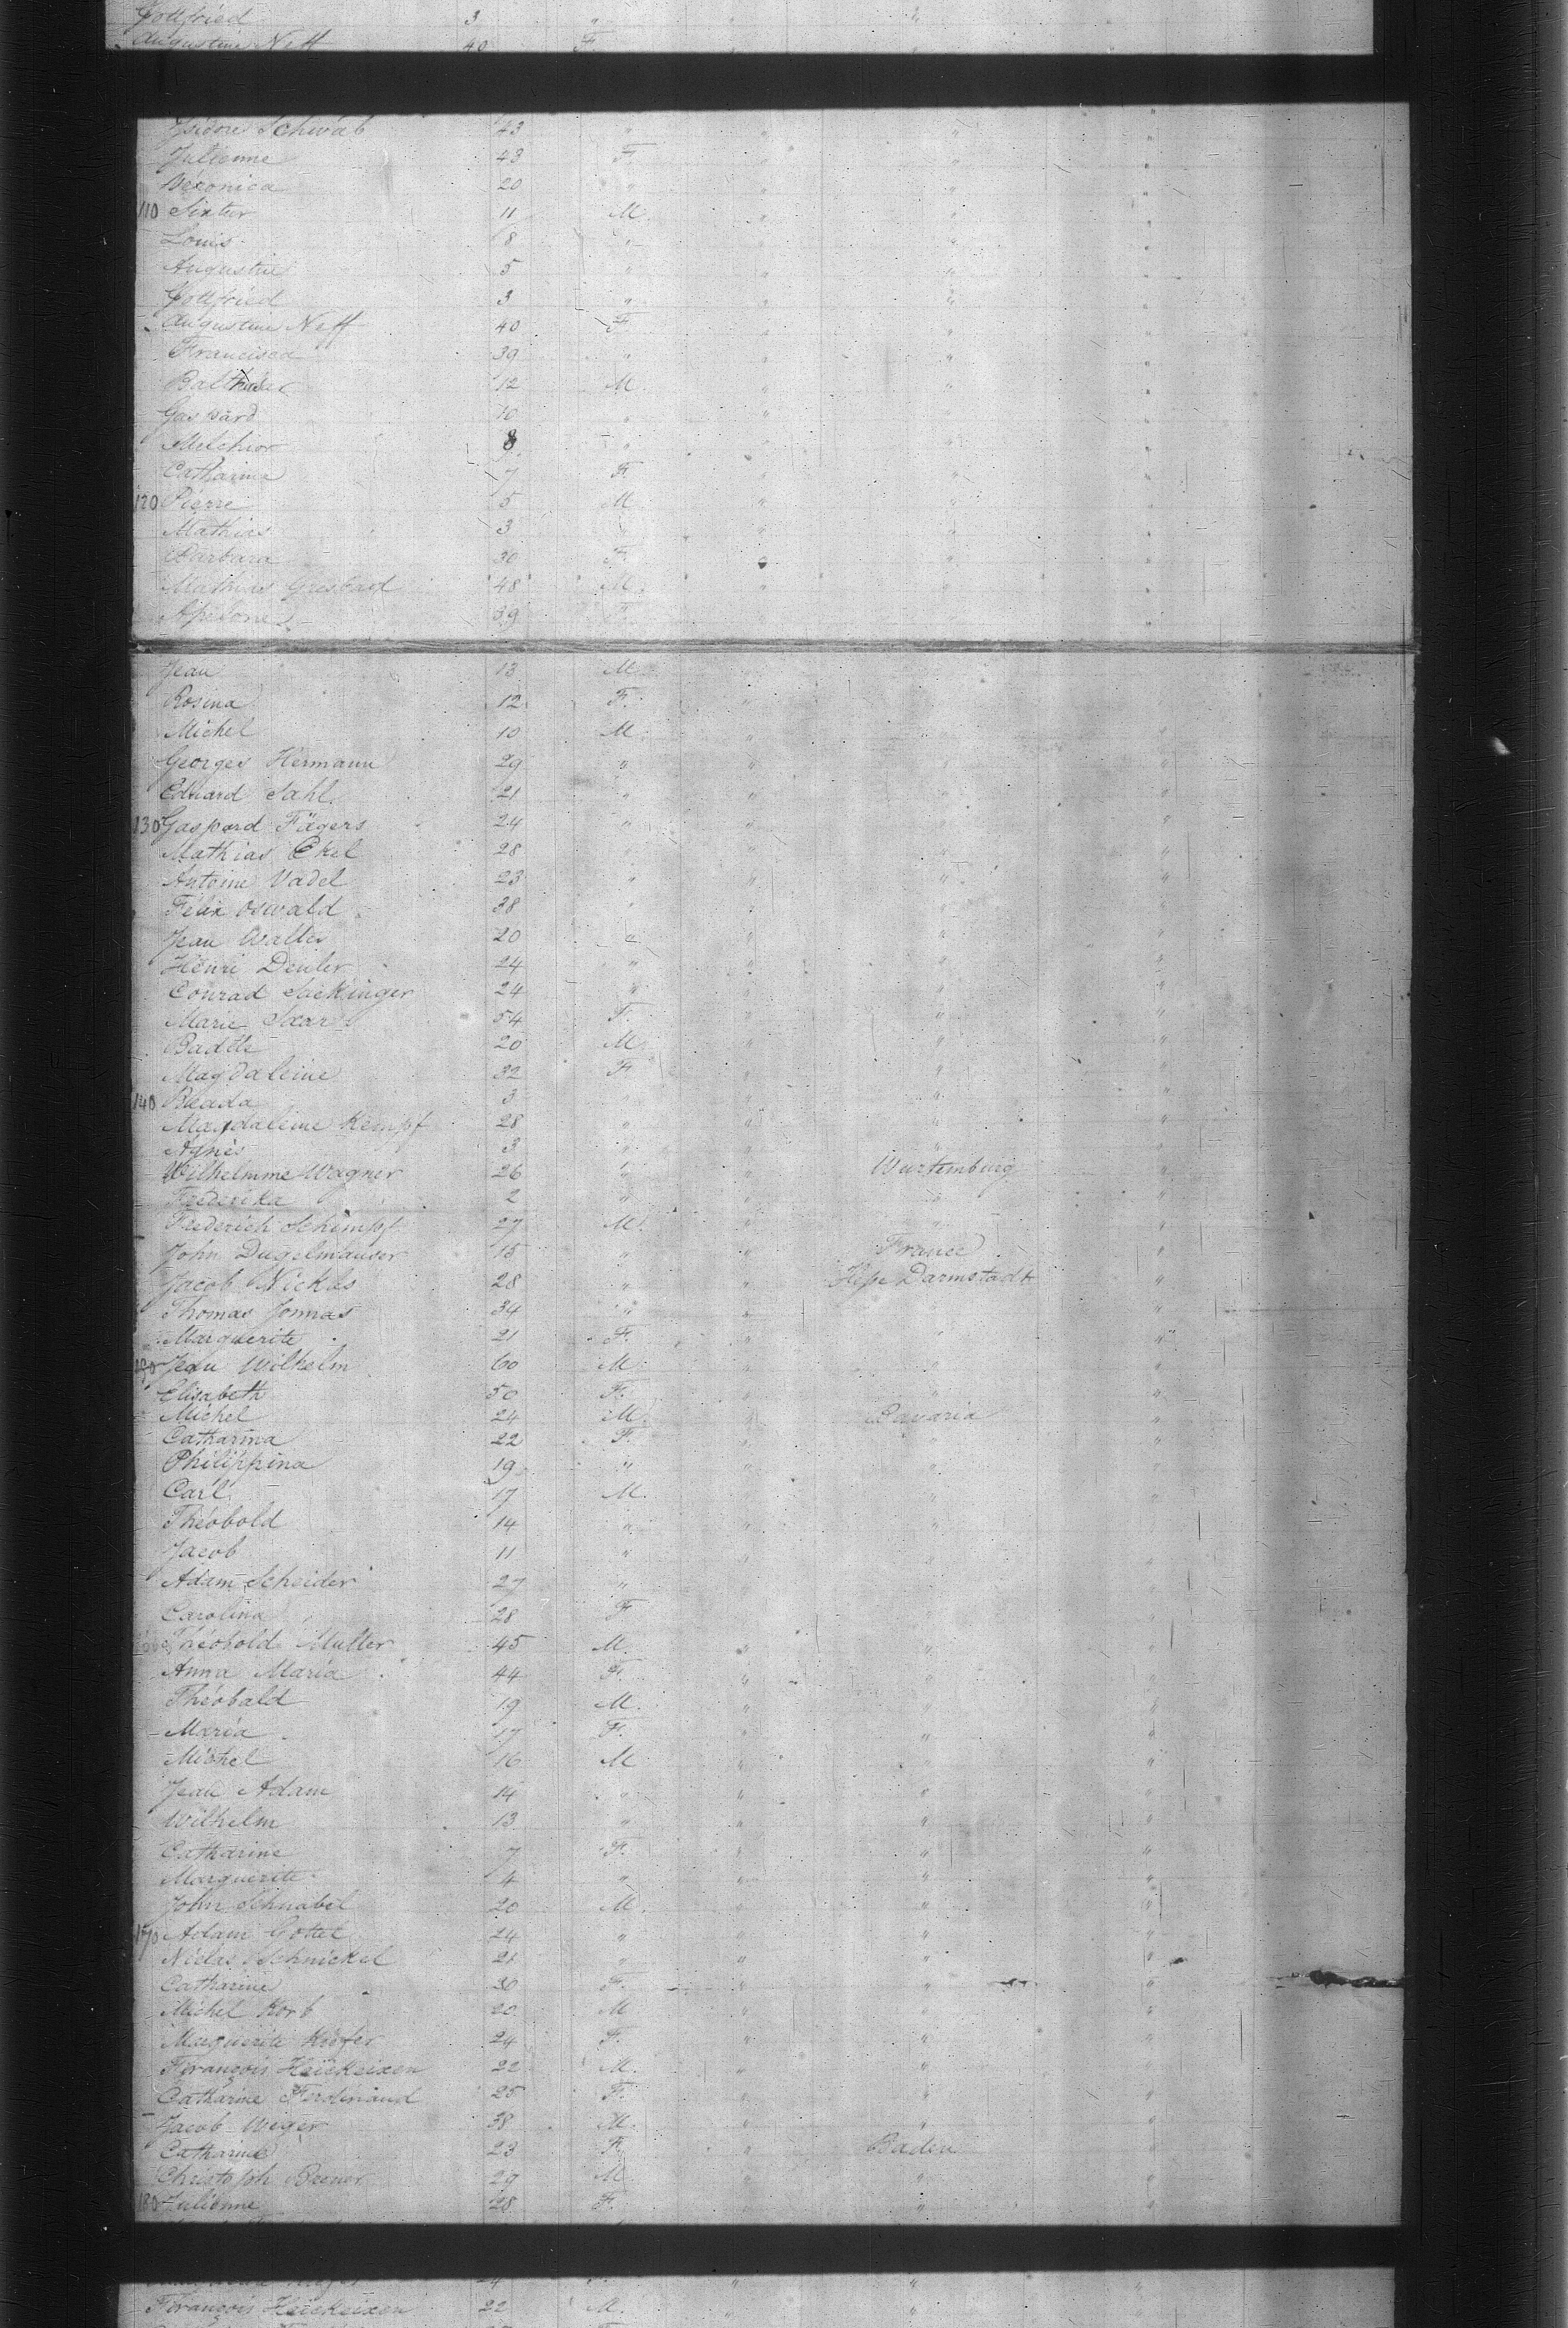 Gottfried 3 " " "
Augustine Neff 40 F
Isidore Schwab 43 " " " "
Julienne 43 F " " "
Veronica 20 " " " "
110 Sixtus 11 M " " "
Louis 8 " " " "
Augustin 5 " " " "
Gottfried 3 " " " "
Augustine Neff 40 F " " "
Francisca 39 " " " "
Balthasar 12 M " " "
Gaspard 10 " " "
Melchior 8 " " "
Catharina 7 F " " "
120 Pierre 5 M " " "
Mathias 3 " " " "
Barbara 30 F " " "
Mathias 48 M " " "
39 F " " "
Jean 13 M " "
Rosina 12 F. " "
Michel 10 M " " "
Georges Hermann 29 " " " "
Eduard Sahl 21 " " " "
130 Gaspard Fägers 24 " " " "
Mathias Ekel 28 " " " "
Antoine Vadel 23 " " " "
Félix Oswald 38 " " " "
Jean Walter 20 " " " "
Henri Deuler 24 " " " "
Conrad Säckinger 24 " " " "
Marie 54 F. " " "
20 M " " "
Magdaleine 32 F " " "
140 3 " " " "
Magdaleine Kempf 28 " " " "
Agnes 3 " " " "
Wilhelmine Wagner 26 " " Wurtemburg "
Frederika 2 " " " "
Frederich Schimpf 27 M. " " "
John Dugelmauser 15 " " France "
Jacob Nickles 28 " " Hesse Darmstadt "
Thomas Jonnas 34 " " "
Marguerite 21 F. " " "
150 Jean Wilhelm 60 M. " " "
Elisabeth 50 F. " " "
Michel 24 M. " Bavaria "
Catharina 22 F. " " "
Philippina 19 " " " "
Carl 17 M. " " "
Théobold 14 " " " "
Jacob 11 " " " "
Adam Scheider 27 " " " "
Carolina 28 F " " "
Théobold Muller 45 M. " " "
Anna Maria 44 F. " " "
Théobald 19 M. " " "
Maria 17 F. " " "
Michel 16 M " " "
Jean Adam 14 " " " "
Wilhelm 13 " " " "
Catharine 7 F. " " "
Marguerite 4 " " " "
John Schnabel 20 M. " " "
170 Adam Gottel 24 " " " "
Niclas Schnickel 21 " " " "
Catharine 30 F. " " "
Michel Korb 20 M " " "
Marguerite Kiefer 24 F. " " "
François Heickeixen 22 M. " " "
Catharine Ferdinand 25 F. " " "
Jacob Weger 38 M. " " "
Catharine 23 F. " Baden "
Christoph Brener 29 M. " " "
180 Julienne 28 F. " " "
François Heickeixen 22 M. " " "